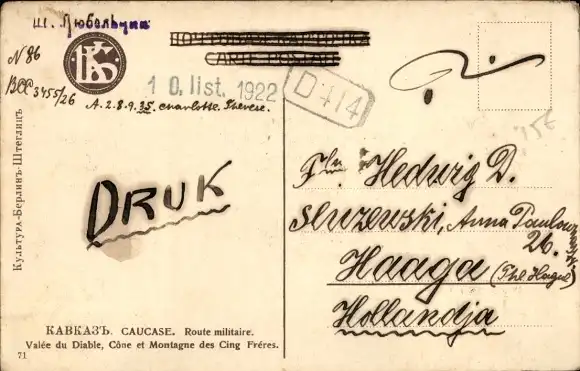 ш. Любельчик
N 86
ВСС 3455/26
КВS
ПОЧТОВАЯ КАРТОЧКА
CARTE POSTALE
10. list. 1922
D 414
A. 2.8.9.35. Charlotte. Therese.
15€
DRUK
Frl. Hedwig D.
Sluzewski, Anna Paulowna
26.
Haaga (The Hague)
Hollandja
Культура-Берлинъ-Штеглицъ
КАВКАЗЪ. CAUCASE. Route militaire.
Valée du Diable, Cône et Montagne des Cing Fréres.
71